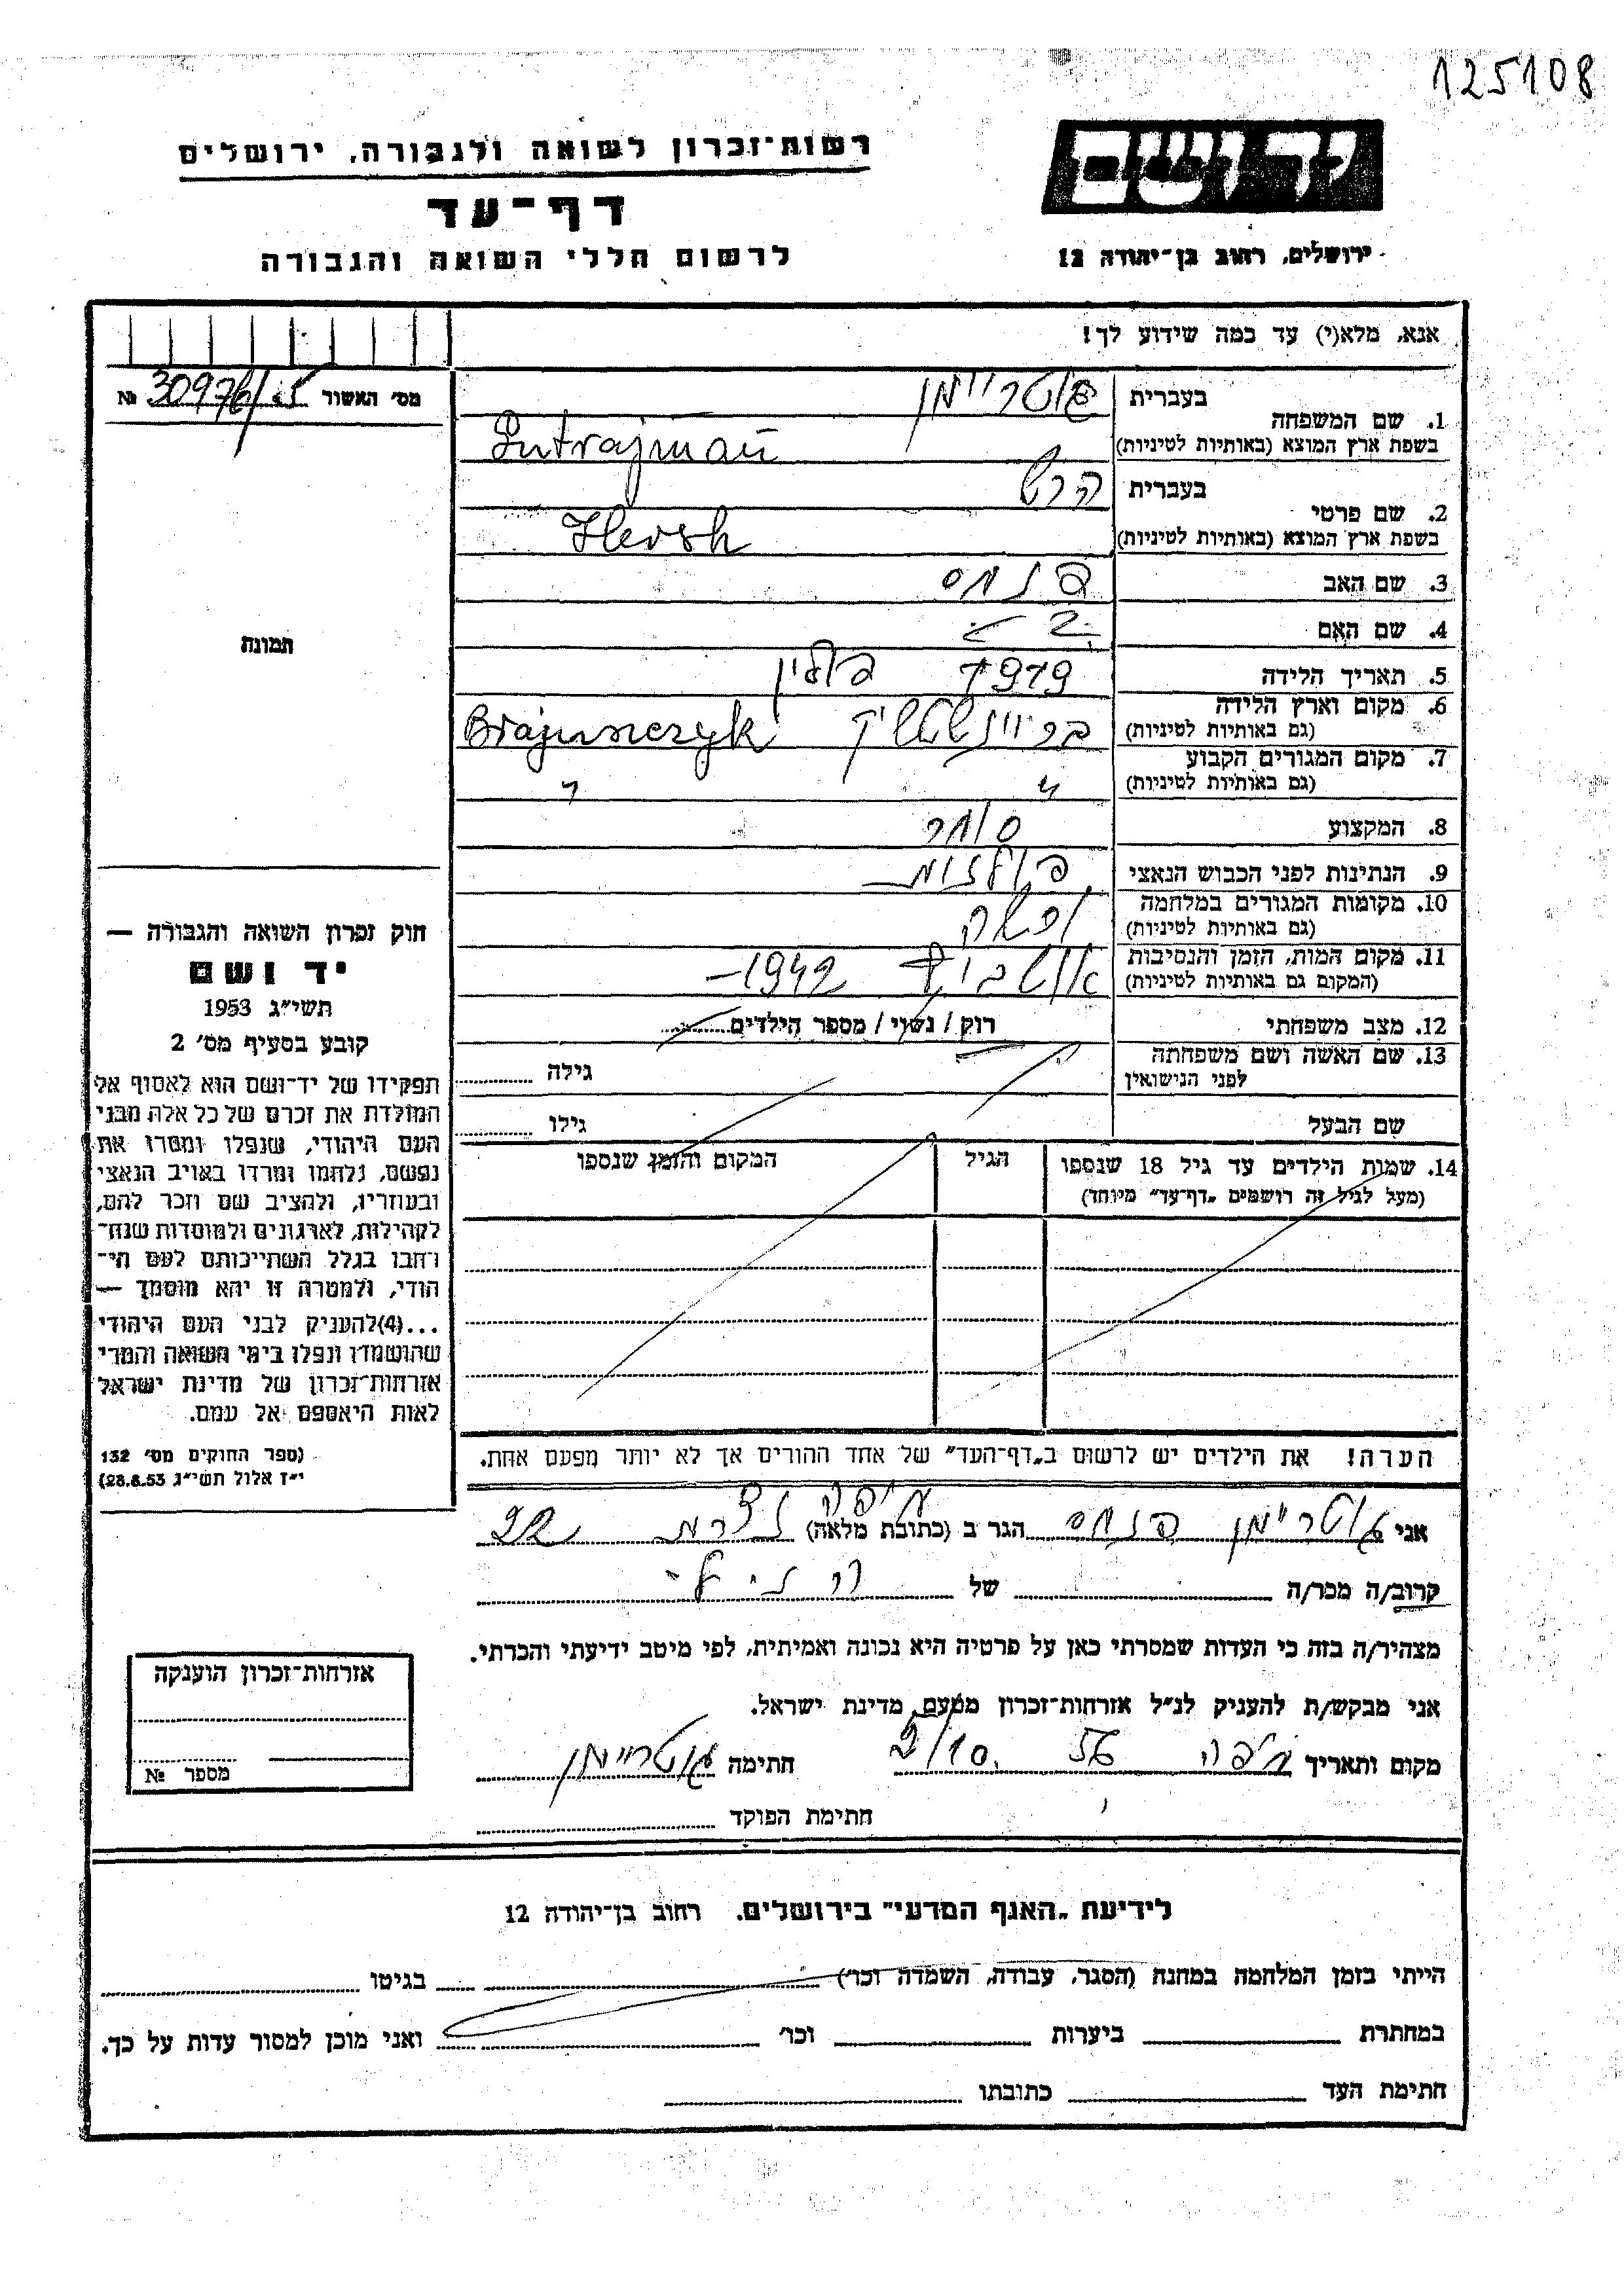 125108
יד ושם
רשות־זכרון לשואה ולגבורה, ירושלים
דף־עד
ירושלים, רחוב בן־יהודה 12
לרשום חללי השואה והגבורה
אנא, מלא(י) עד כמה שידוע לך!
מס׳ האשור № 30976/
1. שם המשפחה
בעברית
בשפת ארץ המוצא (באותיות לטיניות)
2. שם פרטי
בעברית הרש
בשפת ארץ המוצא (באותיות לטיניות) Hersh
3. שם האב פנחס
4. שם האם
5. תאריך הלידה 1919 פולין
6. מקום וארץ הלידה
(גם באותיות לטיניות)
7. מקום המגורים הקבוע
(גם באותיות לטיניות)
8. המקצוע סוחר
9. הנתינות לפני הכבוש הנאצי פולנית
10. מקומות המגורים במלחמה
(גם באותיות לטיניות)
11. מקום המות, הזמן והנסיבות 1942
(המקום גם באותיות לטיניות)
12. מצב משפחתי רוק / נשוי / מספר הילדים
13. שם האשה ושם משפחתה
לפני הנישואין
גילה
שם הבעל גילו
14. שמות הילדים עד גיל 18 שנספו הגיל המקום והזמן שנספו
(מעל לגיל זה רושמים „דף־עד״ מיוחד)
הערה! את הילדים יש לרשום ב„דף־העד״ של אחד ההורים אך לא יותר מפעם אחת.
תמונת
חוק זכרון השואה והגבורה —
יד ושם
תשי״ג 1953
קובע בסעיף מס׳ 2
תפקידו של יד־ושם הוא לאסוף אל
המולדת את זכרם של כל אלה מבני
העם היהודי, שנפלו ומסרו את
נפשם, נלחמו ומרדו באויב הנאצי
ובעוזריו, ולהציב שם וזכר להם,
לקהילות, לארגונים ולמוסדות שנח־
רבו בגלל השתייכותם לעם הי־
הודי, ולמטרה זו יהא מוסמך —
...(4)להעניק לבני העם היהודי
שהושמדו ונפלו בימי השואה והמרי
אזרחות־זכרון של מדינת ישראל
לאות היאספם אל עמם.
(ספר החוקים מס׳ 132
י״ז אלול תשי״ג 28.8.53)
חיפה
אני פנחס הגר ב (כתובת מלאה) נצרת 22
קרוב/ה מכר/ה של
מצהיר/ה בזה כי העדות שמסרתי כאן על פרטיה היא נכונה ואמיתית, לפי מיטב ידיעתי והכרתי.
אני מבקש/ת להעניק לנ״ל אזרחות־זכרון מטעם מדינת ישראל.
מקום ותאריך חיפה 56 2/10 חתימה
חתימת הפוקד
אזרחות־זכרון הוענקה
מספר №
לידיעת „האגף המדעי״ בירושלים, רחוב בן־יהודה 12
הייתי בזמן המלחמה במחנה (הסגר, עבודה, השמדה וכו׳) בגיטו
במחתרת ביערות וכו׳ ואני מוכן למסור עדות על כך.
חתימת העד כתובתו